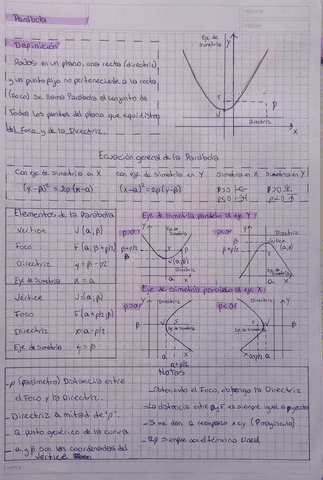 Parábola
Definición
Dados en un plano, una recta (directriz)
y un punto fijo no perteneciente a la recta
(Foco) Se llama Parábola al conjunto de
Todos los puntos del plano que equidistan
del Foco y de la Directriz.
Eje de
simetría
y
F
P
V
Directriz
x
Ecuación general de la Parábola
Con eje de simetría en X
con eje de simetría en Y
Simetría en X
Simetría en Y
(y-β)² = 2p(x-α)
(x-α)² = 2p(y-β)
p>0
p>0
p<0
p<0
Elementos de la Parábola
Vertice V(α;β)
Foco F(α;β+p/2)
Directriz y=β-p/2
Eje de Simetría x=α
Vertice V=(α;β)
Foco F(α+p/2;β)
Directriz x=α-p/2
Eje de Simetría y=β
Eje de simetría paralelo al eje Y
p>0
β+p/2
β
V(α;β)
α
p<0
Directriz
Vertice
(α;β)
β
α
Eje de simetría paralelo al eje X
p>0
Directriz
Eje de Simetría
β
α
α+p/2
p<0
Directriz
Eje de Simetría
β
α+p/2
α
-p (parámetro) Distancia entre
el Foco y la Directriz.
- Directriz a mitad de "p".
- Q punto genérico de la curva
- α y β son las coordenadas del
Vertice
NOTAS
- Obteniendo el Foco, obtengo la Directriz
- La distancia entre
es siempre igual
- Si me dan Q reemplazo x e y
- 2p siempre con el término lineal